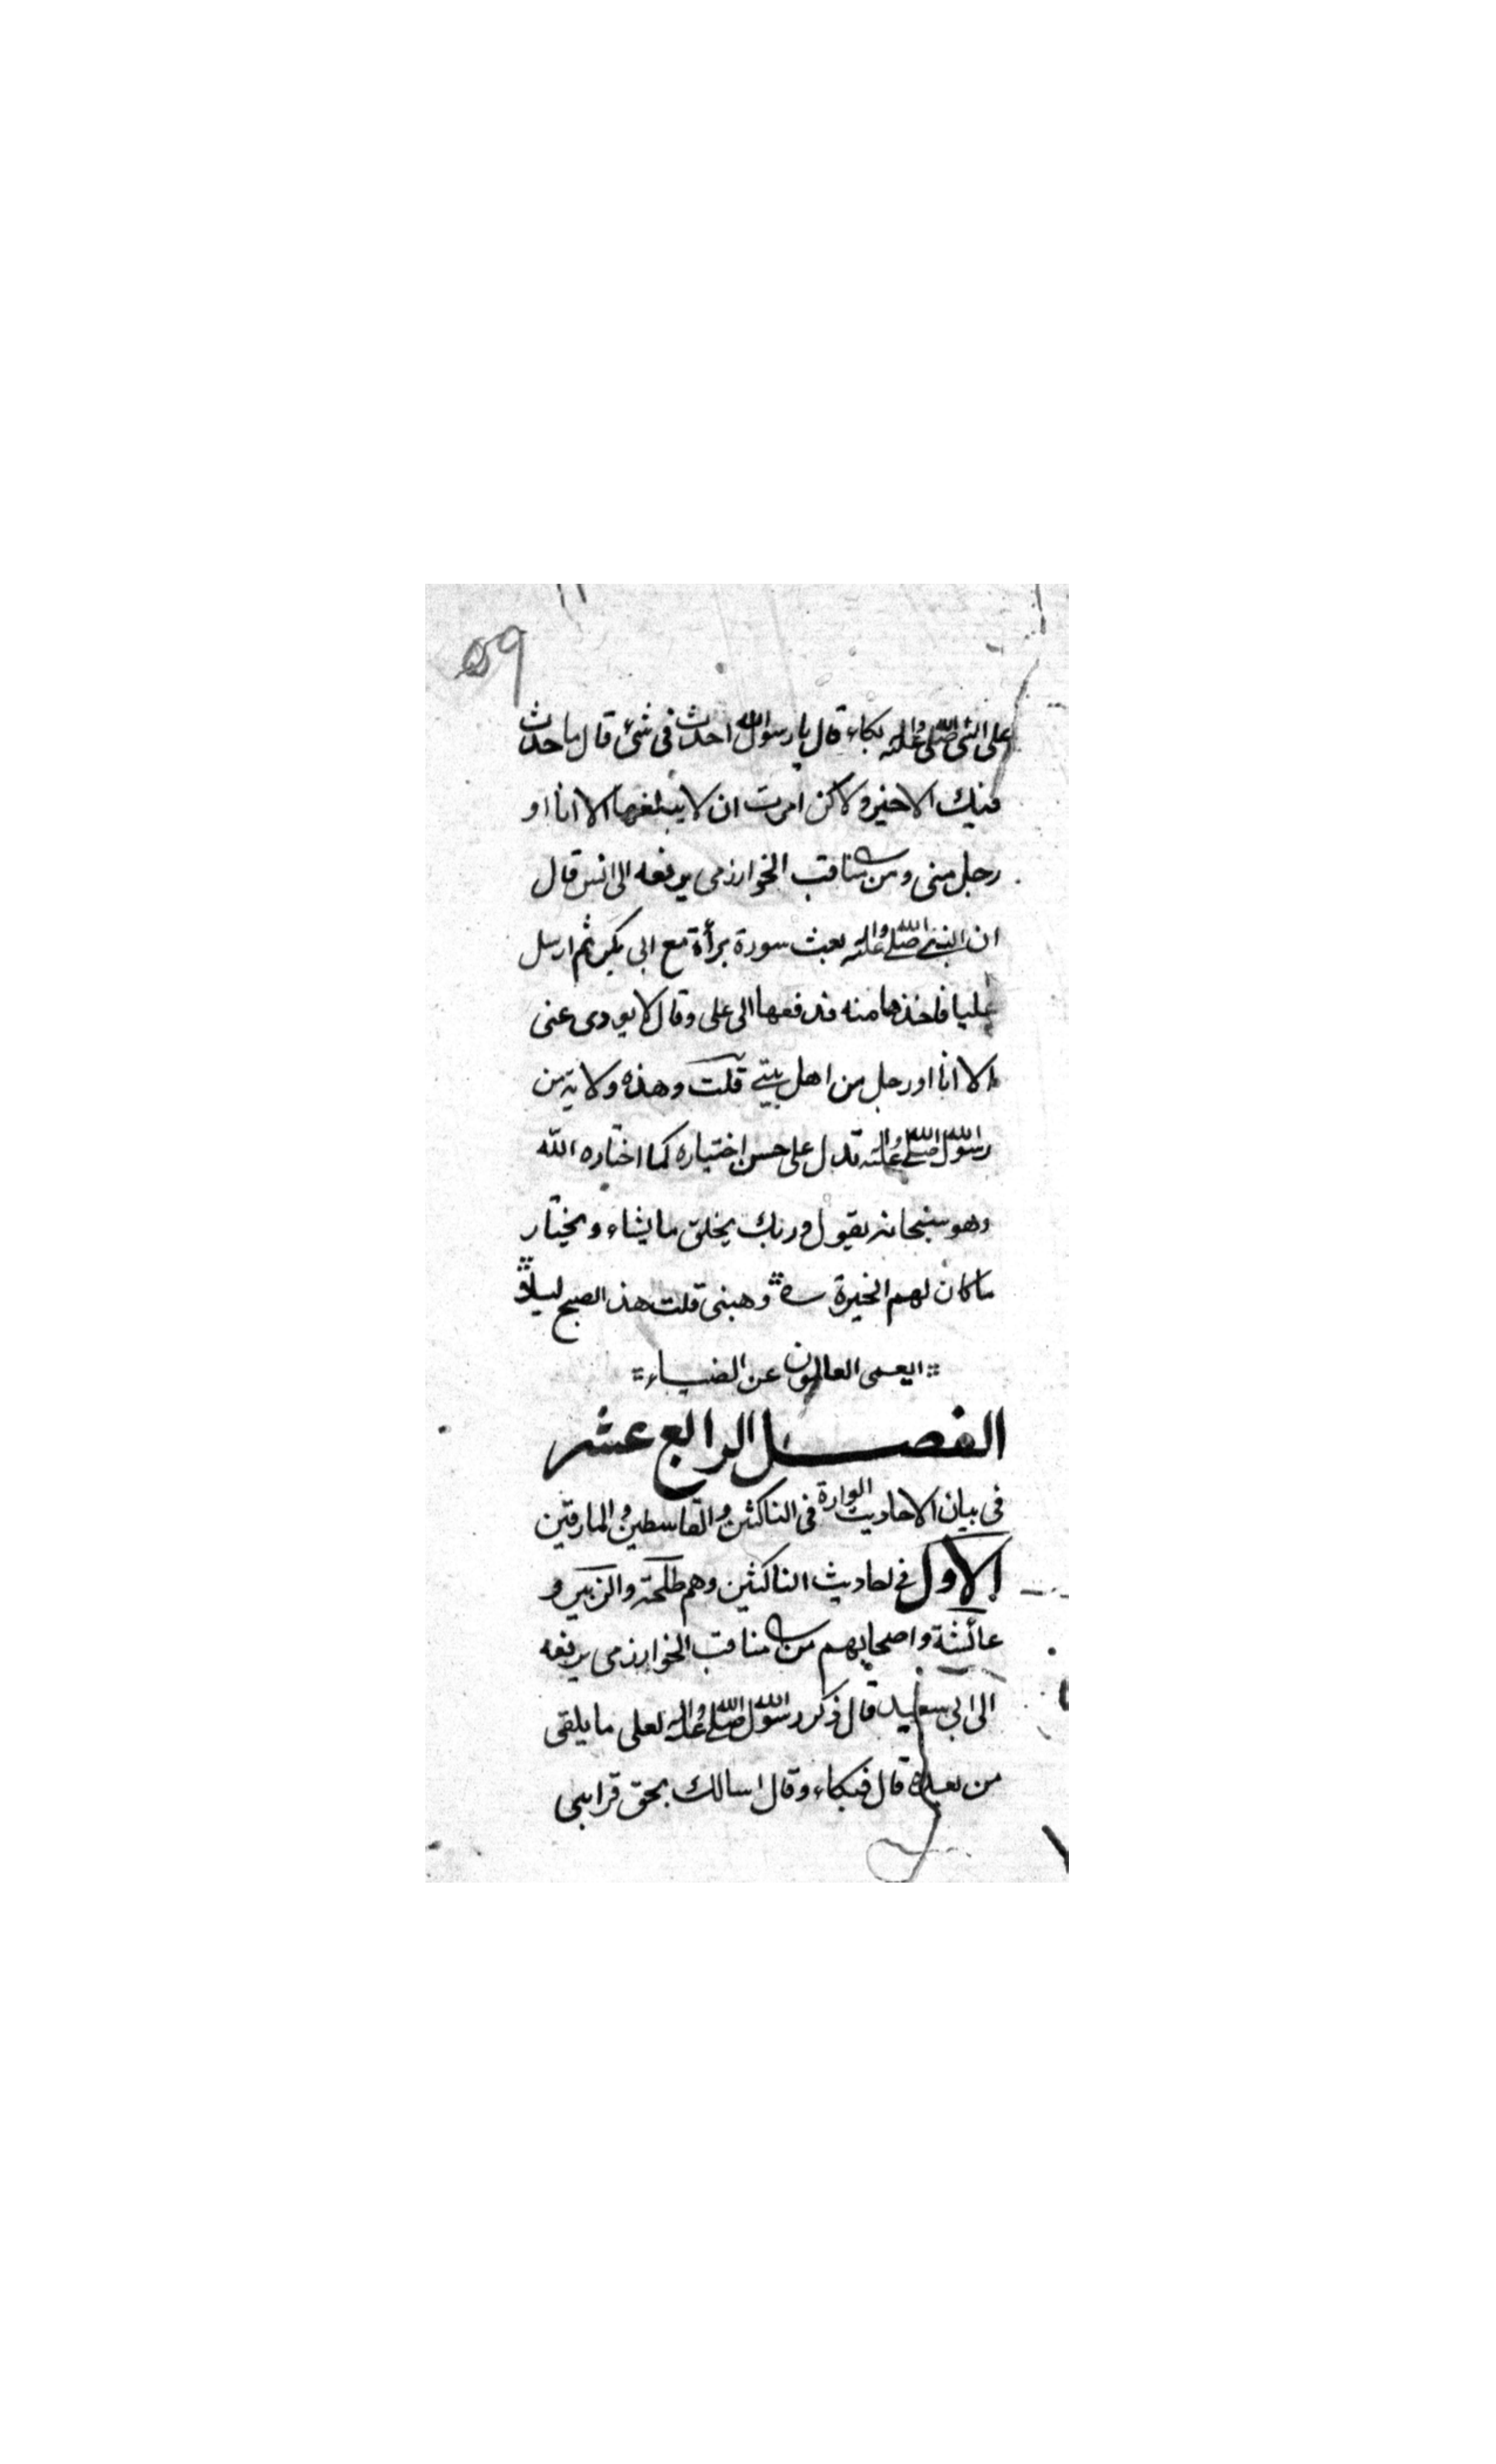 59
على النبى صلى الله عليه واله بكاء قال يا رسول الله احدث فى شئ قال ما حدث
فيك الا خير ولاكن امرت ان لا يبلغها الا انا او
رجل منى ومن مناقب الخوارزمى يرفعه الى انس قال
ان النبى صلى الله عليه واله بعث سورة برأة مع ابى بكر ثم ارسل
عليا فاخذها منه فدفعها الى على وقال لا يودى عنى
الا انا او رجل من اهل بيتى قلت وهذه ولاية من
رسول الله صلى الله عليه واله تدل على حسن اختياره كما اختاره الله
وهو سبحانه يقول وربك يخلق ما يشاء ويختار
ما كان لهم الخيرة وهبنى قلت هذ الصبح ليلا
ايعمى العالمون عن الضياء
الفصل الرابع عشر
فى بيان الاحاديث الوارة فى الناكثين والقاسطين والمارقين
الاول فى احاديث الناكثين وهم طلحة والزبير و
عائشة واصحابهم من مناقب الخوارزمى يرفعه
الى ابى سعيد قال ذكر رسول الله صلى الله عليه واله لعلى ما يلقى
من بعده قال فبكاء وقال اسالك بحق قرابتى